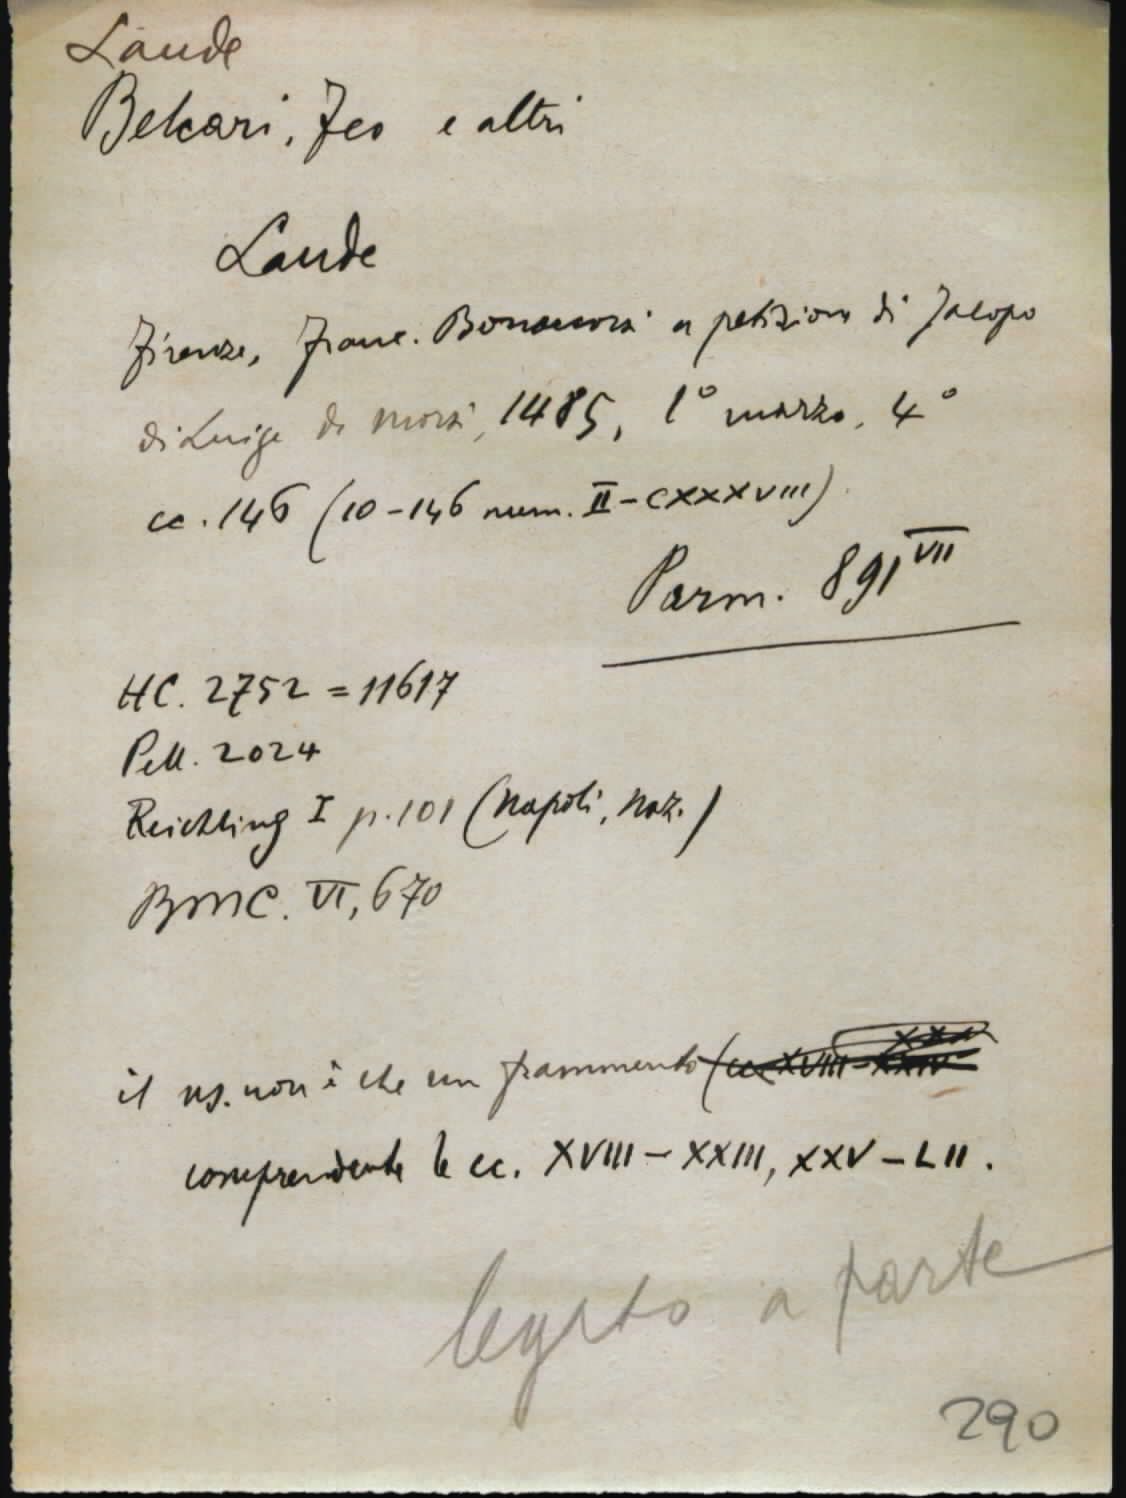 Laude
Belcari, Feo e altri
Laude
Firenze, Franc. Bonaccorsi a petizione di Jacopo
di Luigi de morsi, 1485, 1° marzo, 4°
cc. 146 (10-146 num. II-CXXXVIII)
Parm. 891 VII
HC. 2752 = 11617
Pell. 2024
Reichling I p. 101 (Napoli, Naz.)
BMC. VI, 670
il ns. non è che un frammento (cc XVIII - XXIV XXX
comprendente le cc. XVIII - XXIII, XXV - LII.
legato a parte
290